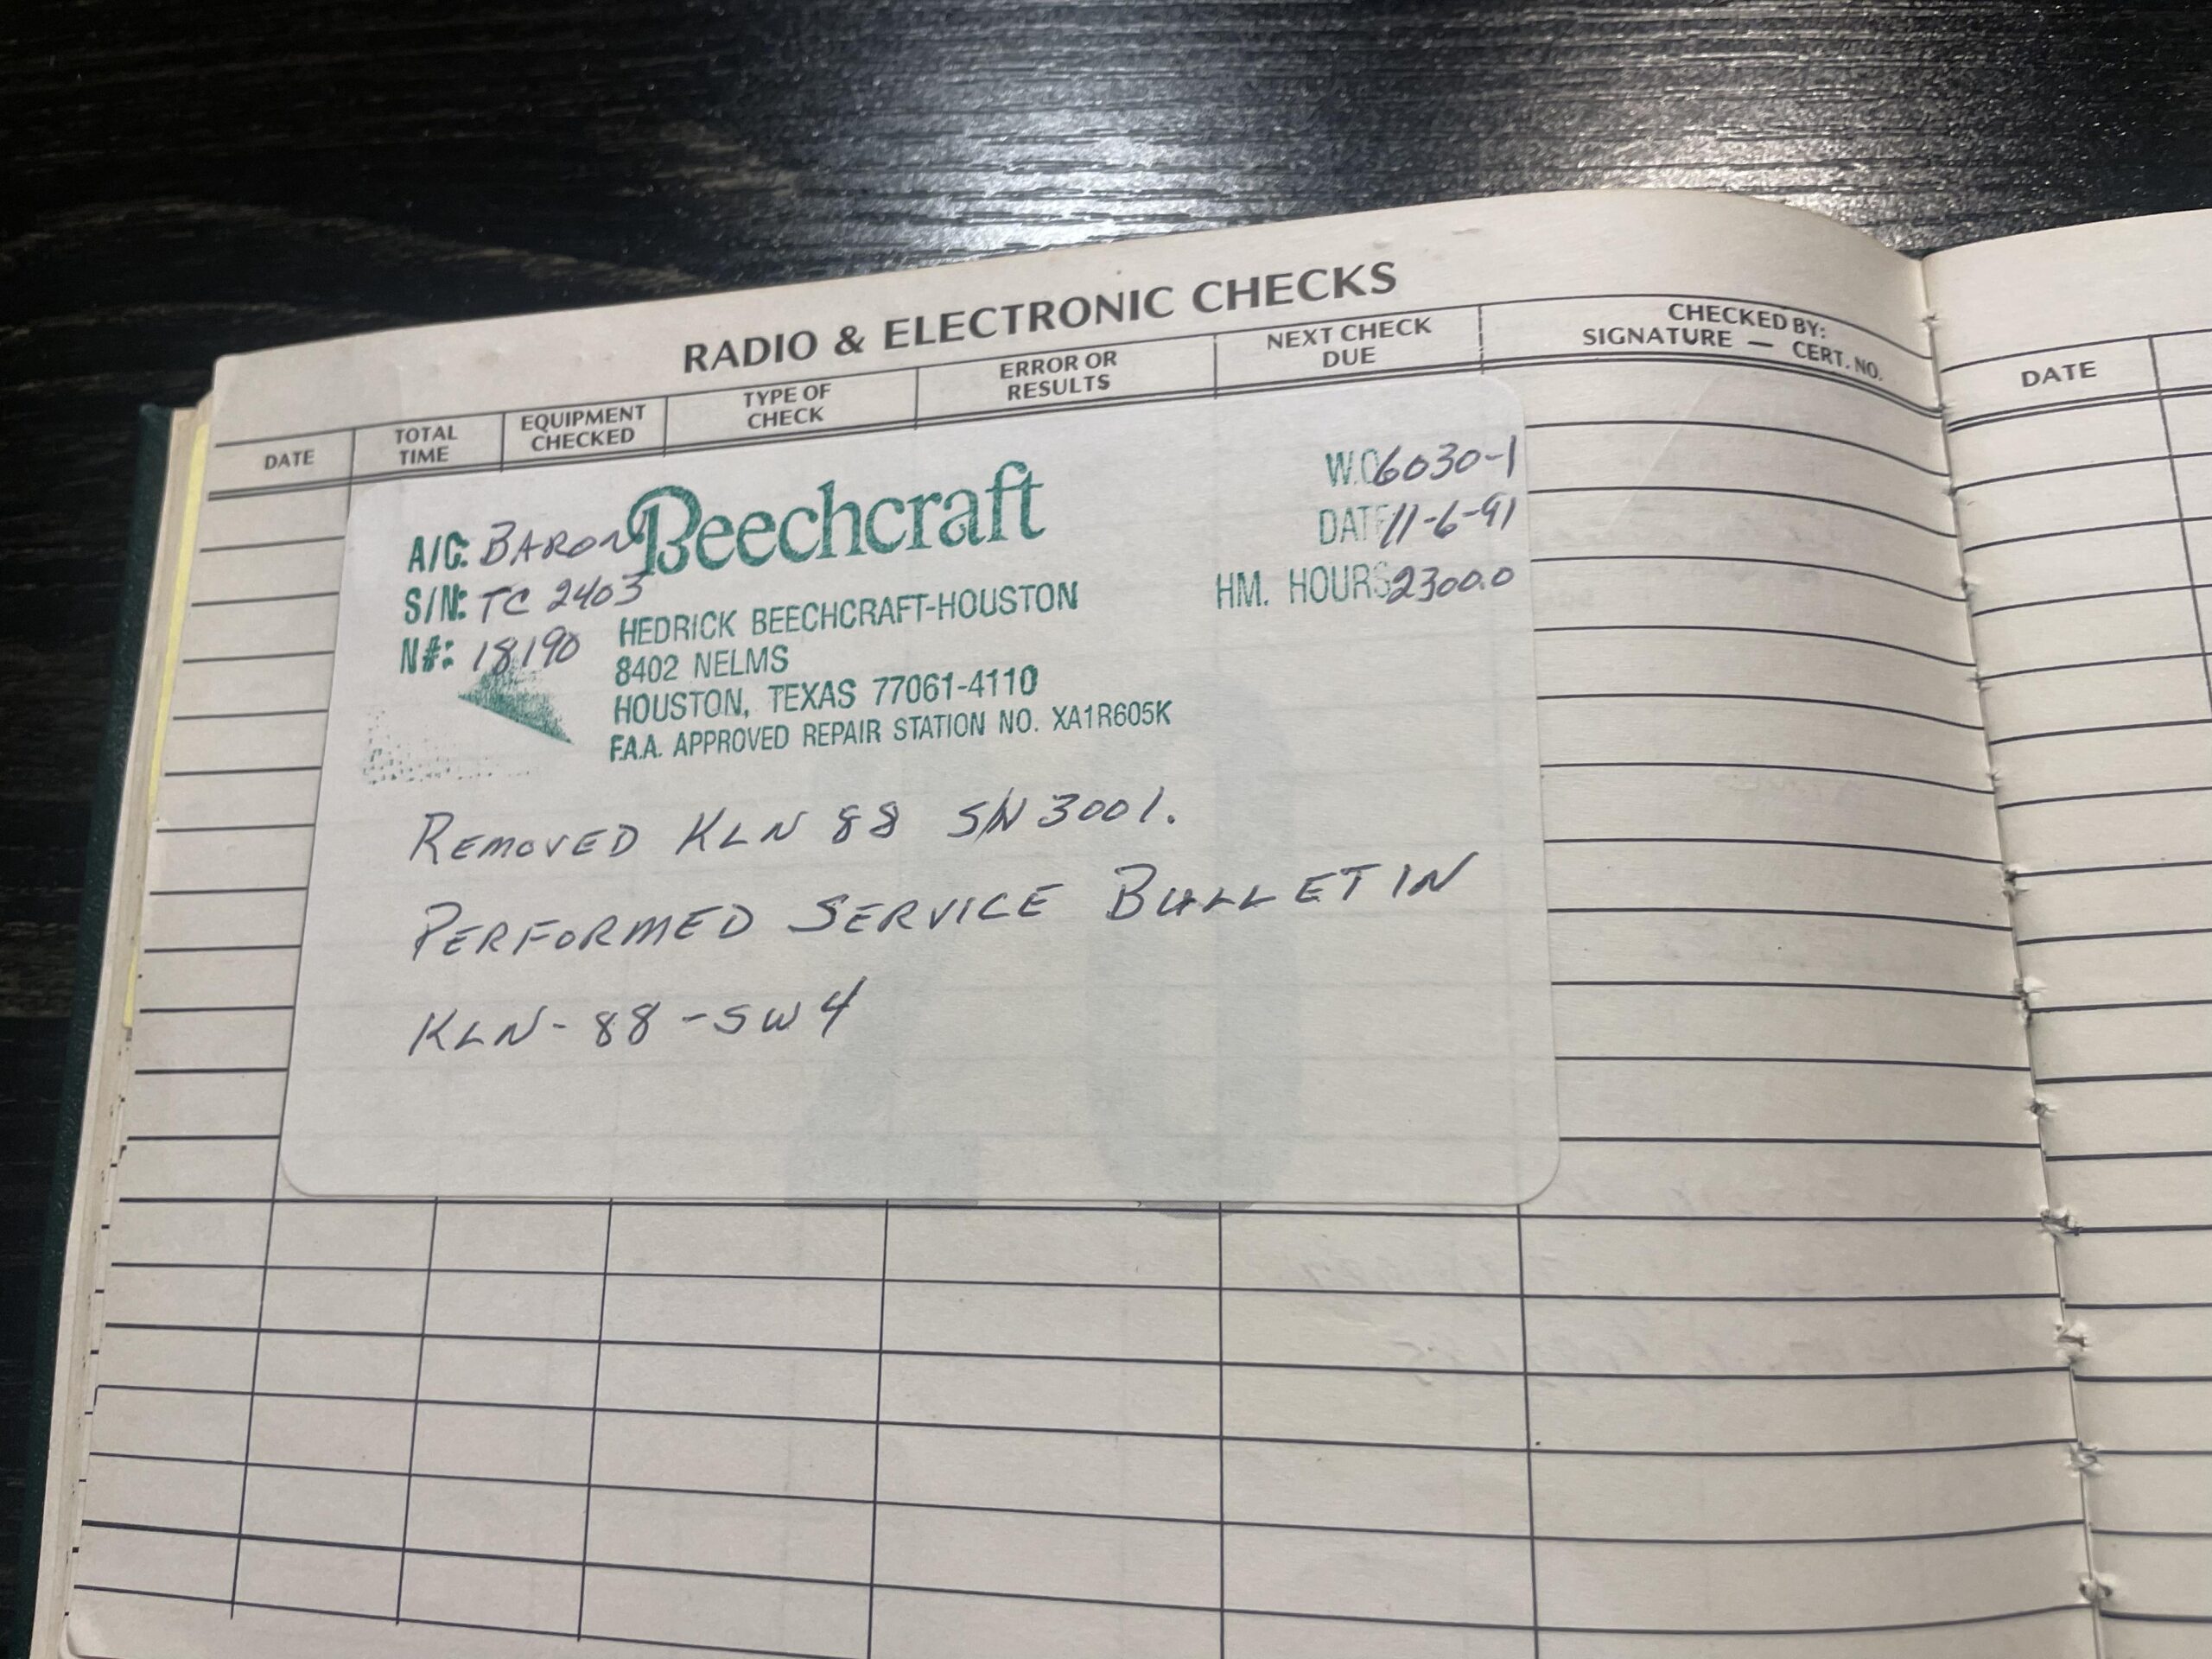 RADIO & ELECTRONIC CHECKS
DATE
TOTAL TIME
EQUIPMENT CHECKED
TYPE OF CHECK
ERROR OR RESULTS
NEXT CHECK DUE
CHECKED BY:
SIGNATURE — CERT. NO.
Beechcraft
A/C: BARON
S/N: TC 2403
N#: 18190
HEDRICK BEECHCRAFT-HOUSTON
8402 NELMS
HOUSTON, TEXAS 77061-4110
F.A.A. APPROVED REPAIR STATION NO. XA1R605K
W.O 6030-1
DATE 11-6-91
HM. HOURS 2300.0
REMOVED KLN 88 S/N 3001.
PERFORMED SERVICE BULLETIN
KLN-88-SW4
DATE